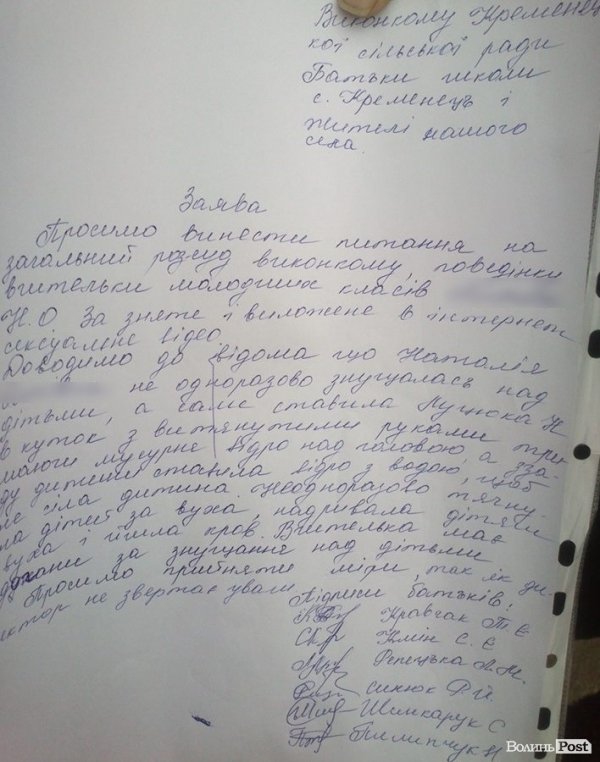 Виконкому Кременец
кої сільської ради
Батьки школи
с. Кременець і
жителі нашого
села.
Заява
Просимо винести питання на
загальний розсуд виконкому, поведінки
вчительки молодших класів
Н.О. За зняте і виложене в інтернет
сексуальне відео.
Доводимо до відома що Наталія
не одноразово знущалась над
дітьми, а саме ставила Луцюка Н
в куток з витянутими руками три
маючи мусурне відро над головою, а зза-
ду дитини ставила відро з водою, щоб
не сіла дитина. Неоднаразово тячну-
ла дітей за вуха, надривала дітям
вуха і ішла кров. Вчителька має
догани за знущання над дітьми
Просимо прийняти міри, так як ди-
ектор не звертає уваги
Підписи батьків:
Кравчак Т Є
Клін С. Є
Репецька Л.М.
Синюк Р.Й.
Шинкарук С
Пилипчук Н
ВолиньPost